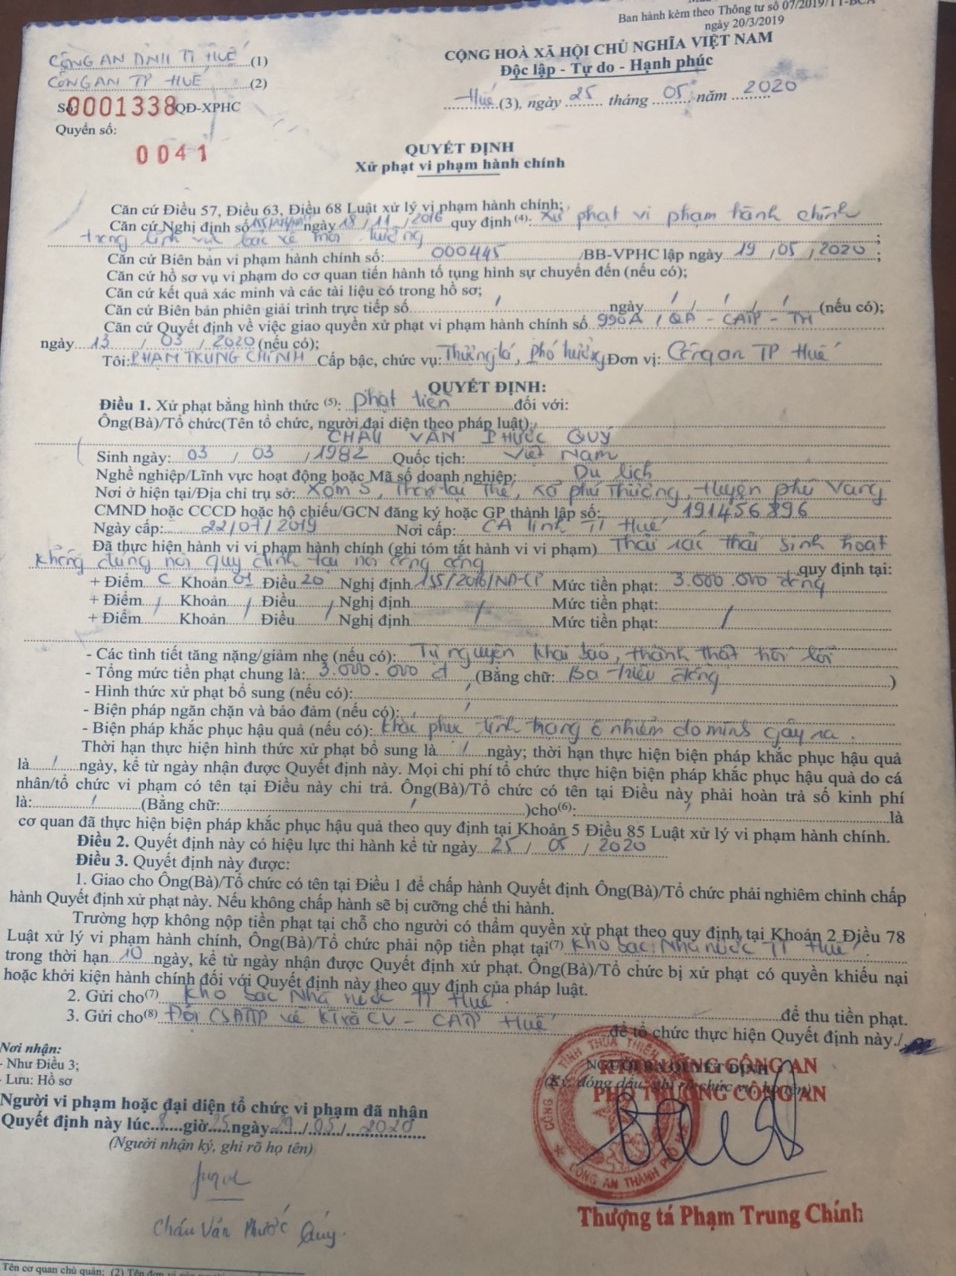 Ban hành kèm theo Thông tư số 07/2019/TT-BCA
ngày 20/3/2019
CÔNG AN TỈNH TT HUẾ (1)
CÔNG AN TP HUẾ (2)
Số 0001338 QĐ-XPHC
Quyển số:
0041
CỘNG HOÀ XÃ HỘI CHỦ NGHĨA VIỆT NAM
Độc lập - Tự do - Hạnh phúc
Huế (3), ngày 25 tháng 05 năm 2020
QUYẾT ĐỊNH
Xử phạt vi phạm hành chính
Căn cứ Điều 57, Điều 63, Điều 68 Luật xử lý vi phạm hành chính;
Căn cứ Nghị định số 155/ ngày 18/11/2016 quy định (4): xử phạt vi phạm hành chính
trong lĩnh vực bảo vệ môi trường ;
Căn cứ Biên bản vi phạm hành chính số: 000445 /BB-VPHC lập ngày 19 / 05 / 2020 ;
Căn cứ hồ sơ vụ vi phạm do cơ quan tiến hành tố tụng hình sự chuyển đến (nếu có);
Căn cứ kết quả xác minh và các tài liệu có trong hồ sơ;
Căn cứ Biên bản phiên giải trình trực tiếp số / ngày / / / / / (nếu có);
Căn cứ Quyết định về việc giao quyền xử phạt vi phạm hành chính số 990A / QĐ - CATP - TH
ngày 13 / 03 / 2020 (nếu có);
Tôi: PHẠM TRUNG CHÍNH Cấp bậc, chức vụ: Thượng tá, phó trưởng Đơn vị: Công an TP Huế
QUYẾT ĐỊNH:
Điều 1. Xử phạt bằng hình thức (5): phạt tiền đối với:
Ông(Bà)/Tổ chức(Tên tổ chức, người đại diện theo pháp luật):
CHÂU VĂN PHƯỚC QUÝ
Sinh ngày: 03 / 03 / 1982 Quốc tịch: Việt Nam
Nghề nghiệp/Lĩnh vực hoạt động hoặc Mã số doanh nghiệp: Du lịch
Nơi ở hiện tại/Địa chỉ trụ sở: Xóm 5, Thôn Lại Thế, xã Phú Thượng, Huyện Phú Vang
CMND hoặc CCCD hoặc hộ chiếu/GCN đăng ký hoặc GP thành lập số: 191456896
Ngày cấp: 22/07/2019 Nơi cấp: CA tỉnh TT Huế
Đã thực hiện hành vi vi phạm hành chính (ghi tóm tắt hành vi vi phạm) Thải rác thải sinh hoạt
không đúng nơi quy định tại nơi công cộng quy định tại:
+ Điểm C Khoản 01 Điều 20 Nghị định 155/2016/NĐ-CP Mức tiền phạt: 3.000.000 đồng
+ Điểm / Khoản / Điều / Nghị định / Mức tiền phạt: /
+ Điểm / Khoản / Điều / Nghị định / Mức tiền phạt: /
- Các tình tiết tăng nặng/giảm nhẹ (nếu có): Tự nguyện khai báo, thành thật hối lỗi
- Tổng mức tiền phạt chung là: 3.000.000 đ (Bằng chữ: Ba triệu đồng )
- Hình thức xử phạt bổ sung (nếu có): /
- Biện pháp ngăn chặn và bảo đảm (nếu có): /
- Biện pháp khắc phục hậu quả (nếu có): khắc phục tình trạng ô nhiễm do mình gây ra.
Thời hạn thực hiện hình thức xử phạt bổ sung là / ngày; thời hạn thực hiện biện pháp khắc phục hậu quả
là / ngày, kể từ ngày nhận được Quyết định này. Mọi chi phí tổ chức thực hiện biện pháp khắc phục hậu quả do cá
nhân/tổ chức vi phạm có tên tại Điều này chi trả. Ông(Bà)/Tổ chức có tên tại Điều này phải hoàn trả số kinh phí
là: / (Bằng chữ: / )cho(6): / là
cơ quan đã thực hiện biện pháp khắc phục hậu quả theo quy định tại Khoản 5 Điều 85 Luật xử lý vi phạm hành chính.
Điều 2. Quyết định này có hiệu lực thi hành kể từ ngày 25 / 05 / 2020
Điều 3. Quyết định này được:
1. Giao cho Ông(Bà)/Tổ chức có tên tại Điều 1 để chấp hành Quyết định Ông(Bà)/Tổ chức phải nghiêm chỉnh chấp
hành Quyết định xử phạt này. Nếu không chấp hành sẽ bị cưỡng chế thi hành.
Trường hợp không nộp tiền phạt tại chỗ cho người có thẩm quyền xử phạt theo quy định tại Khoản 2 Điều 78
Luật xử lý vi phạm hành chính, Ông(Bà)/Tổ chức phải nộp tiền phạt tại(7) Kho bạc Nhà nước TT Huế
trong thời hạn 10 ngày, kể từ ngày nhận được Quyết định xử phạt. Ông(Bà)/Tổ chức bị xử phạt có quyền khiếu nại
hoặc khởi kiện hành chính đối với Quyết định này theo quy định của pháp luật.
2. Gửi cho(7) Kho bạc Nhà nước TT Huế để thu tiền phạt.
3. Gửi cho(8) Đội CSĐTTP về KT và CV - CATP Huế để tổ chức thực hiện Quyết định này./.
Nơi nhận:
- Như Điều 3;
- Lưu: Hồ sơ
NGƯỜI RA QUYẾT ĐỊNH
(Ký, đóng dấu, ghi rõ chức vụ, họ tên)
TRƯỞNG CÔNG AN
PHÓ TRƯỞNG CÔNG AN
CÔNG AN TỈNH THỪA THIÊN
CÔNG AN THÀNH PHỐ
Người vi phạm hoặc đại diện tổ chức vi phạm đã nhận
Quyết định này lúc 8 giờ 25 ngày / 05 / 2020
(Người nhận ký, ghi rõ họ tên)
Châu Văn Phước Quý
Thượng tá Phạm Trung Chính
Tên cơ quan chủ quản;